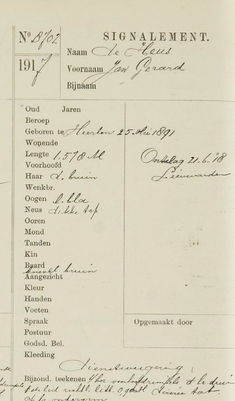 No B702 SIGNALEMENT.
Naam de Heus
1917 Voornaam Jan Gerard
Bijnaam
Oud Jaren
Beroep
Geboren te Heerlen 25 Mei 1891
Wonende
Lengte 1.578 M Ontslag 21.6.'18
Voorhoofd Leeuwarden
Haar d. bruin
Wenkbr.
Oogen
Neus dikke
Ooren
Mond
Tanden
Kin
Baard
Aangezicht bruin
Kleur
Handen
Voeten
Spraak Opgemaakt door
Postuur
Godsd. Bel.
Kleeding
Dienstweigering
Bijzond. teekenen